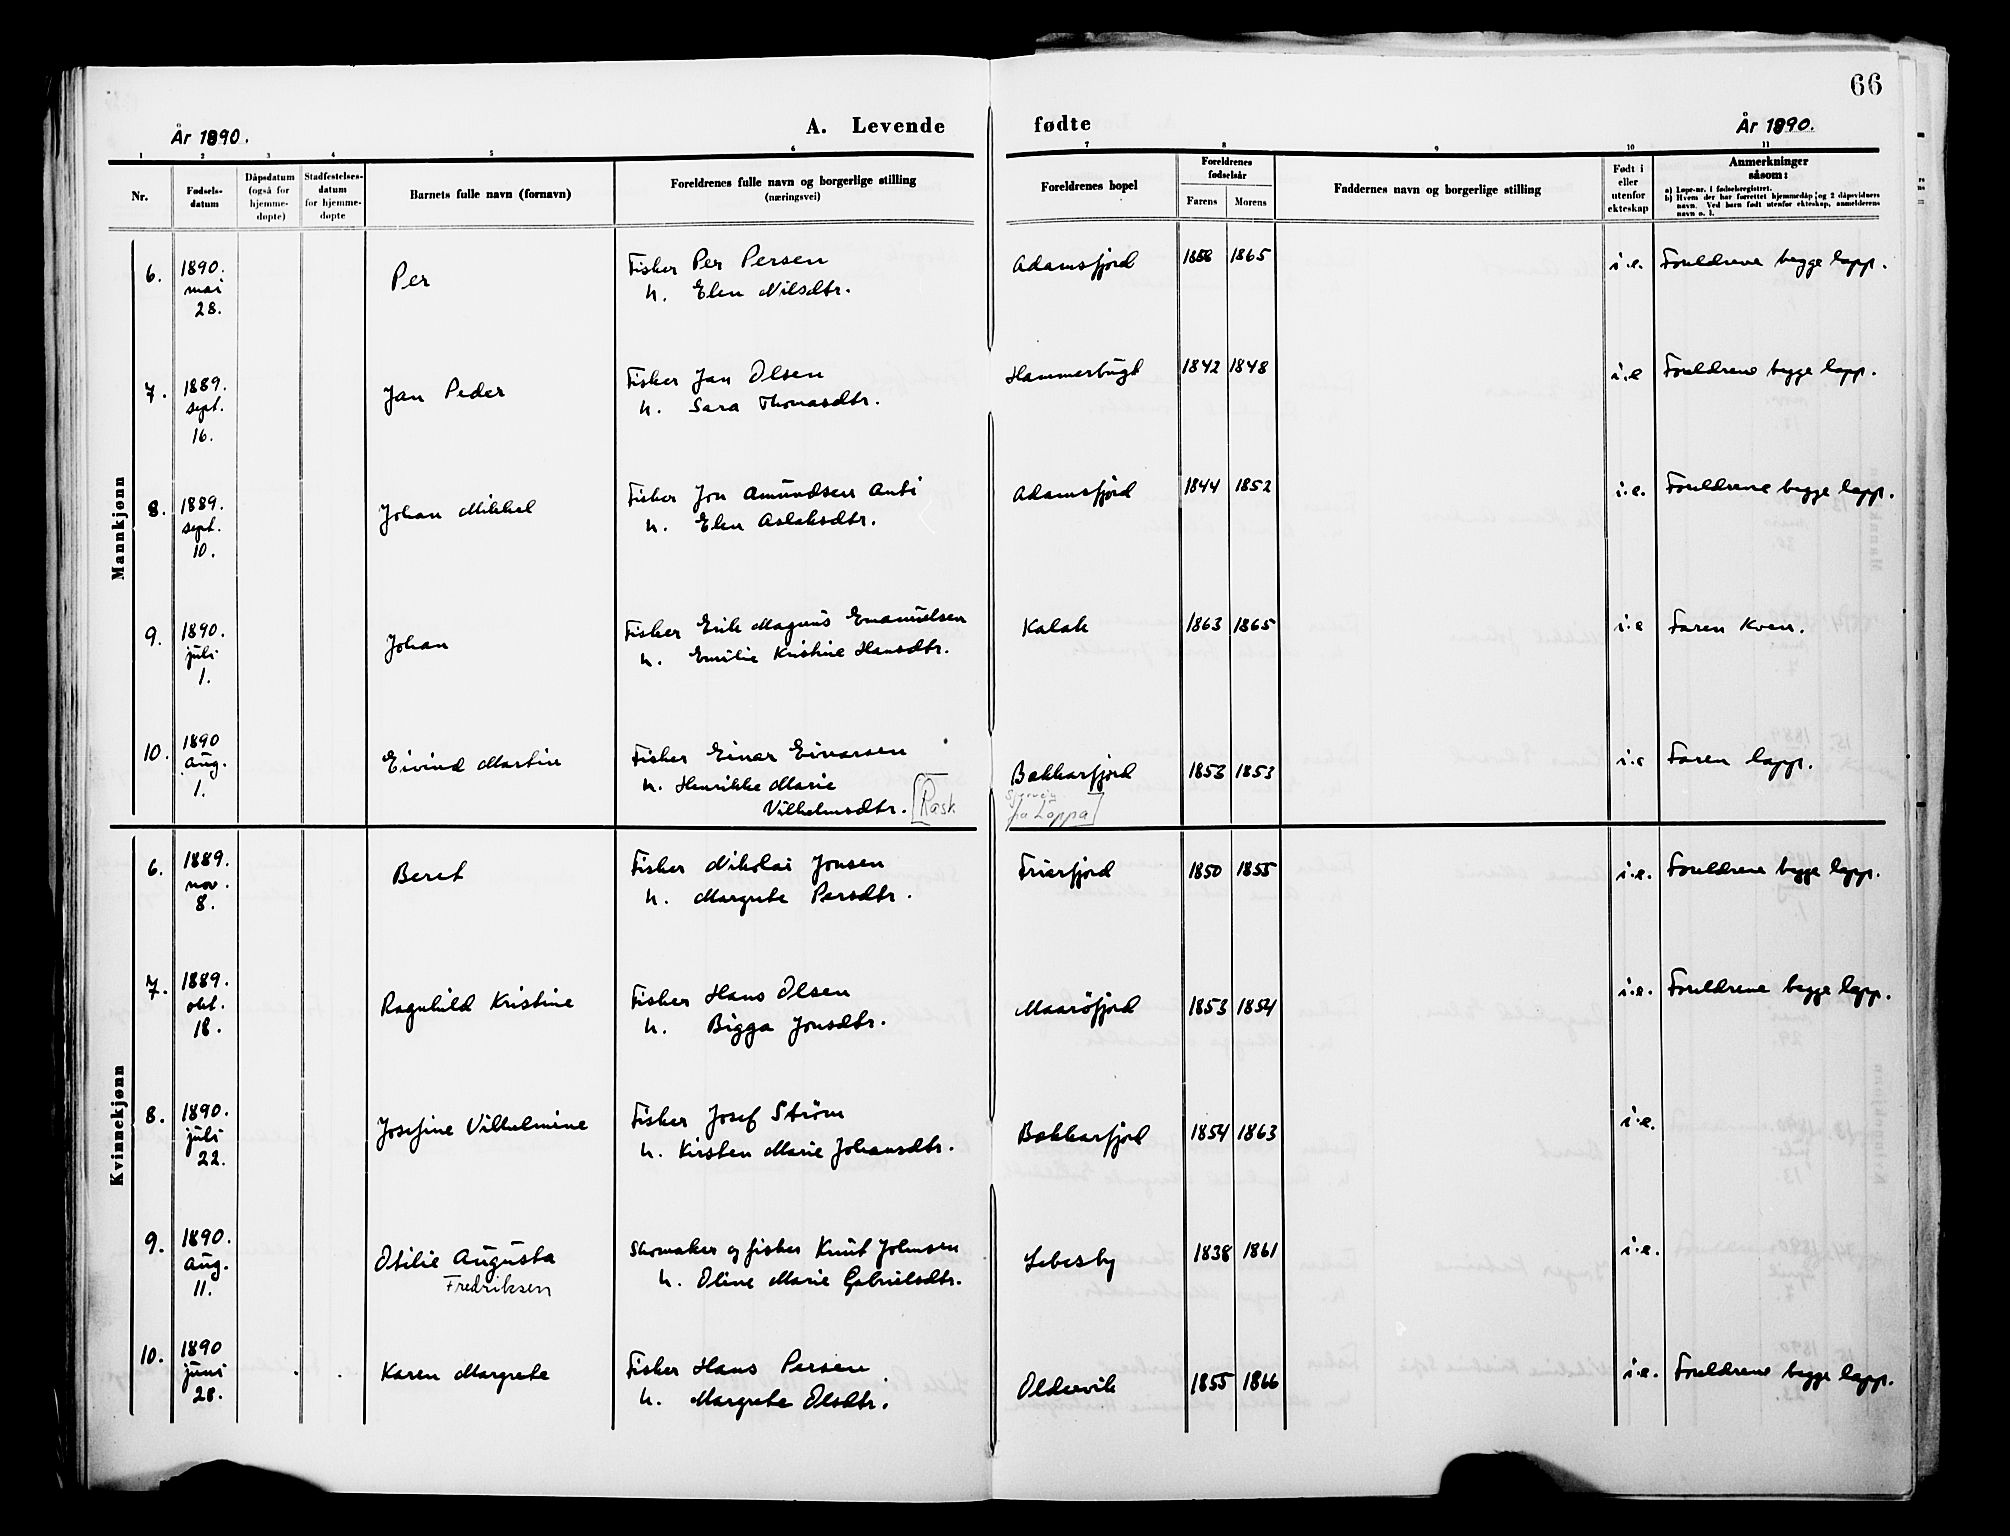 66
År 1890. A. Levende fødte År 1890.
1 2 3 4 5 6 7 8 9 10 11
Nr. Fødsels-datum Dåpsdatum (også for hjemme-døpte) Stadfestelses-datum for hjemme-døpte Barnets fulle navn (fornavn) Foreldrenes fulle navn og borgerlige stilling (næringsvei) Foreldrenes bopel Foreldrenes fødselsår Farens Morens Faddernes navn og borgerlige stilling Født i eller utenfor ekteskap Anmerkninger såsom:
a) Løpe-nr. i fødselsregistret.
b) Hvem der har forrettet hjemmedåp og 2 dåpsvidners navn. Ved barn født utenfor ekteskap, anmelderens navn o. l.
Mannkjønn
6. 1890. mai 28. Per Fisker Per Persen Adamsfjord 1858 1865 i.e. Foreldrene begge lapp.
h. Elen Nilsdtr.
7. 1889. sept. 16. Jan Peder Fisker Jan Olsen Hammerbugt 1842 1848 i.e Foreldrene begge lapp.
h. Sara Thomasdtr.
8. 1889. sept. 10. Johan Mikkel Fisker Jon Amundsen Anti Adamsfjord 1844 1852 i.e. Foreldrene begge lapp.
h. Elen Aslaksdtr.
9. 1890. juli 1. Johan Fisker Erik Magnus Emanuelsen Kalak 1863 1865 i.e Faren Kven.
h. Emilie Kristine Hansdtr.
10. 1890 Aug. 1. Eivind Martin Fisker Einar Eivarsen Bekkarfjord 1853 1853 i.e Faren lapp.
h. Henrikke Marie
Vilhelmsdtr. [Rask
fra Loppa]
Kvinnekjønn
6. 1889. nov. 8. Beret Fisker Nikolai Jonsen Friarfjord 1850 1855 i.e. Foreldrene begge lapp.
h. Margrete Persdtr.
7. 1889. okt. 18. Ragnhild Kristine Fisker Hans Olsen Maarøfjord 1853 1854 i.e. Foreldrene begge lapp.
h. Bigga Jonsdtr.
8. 1890. juli 22. Josefine Vilhelmine Fisker Josef Strøm Bekkarfjord 1854 1863 i.e.
h. Kirsten Marie Johansdtr.
9. 1890. Aug. 11. Otilie Augusta Skomaker og fisker Knut Johnsen Lebesby 1838 1861 i.e.
Fredriksen h. Oline Marie Gabrielsdtr.
10. 1890 juni 28. Karen Margrete Fisker Hans Persen Oldervik 1855 1866 i.e. Foreldrene begge lapp.
h. Margrete Olsdtr.